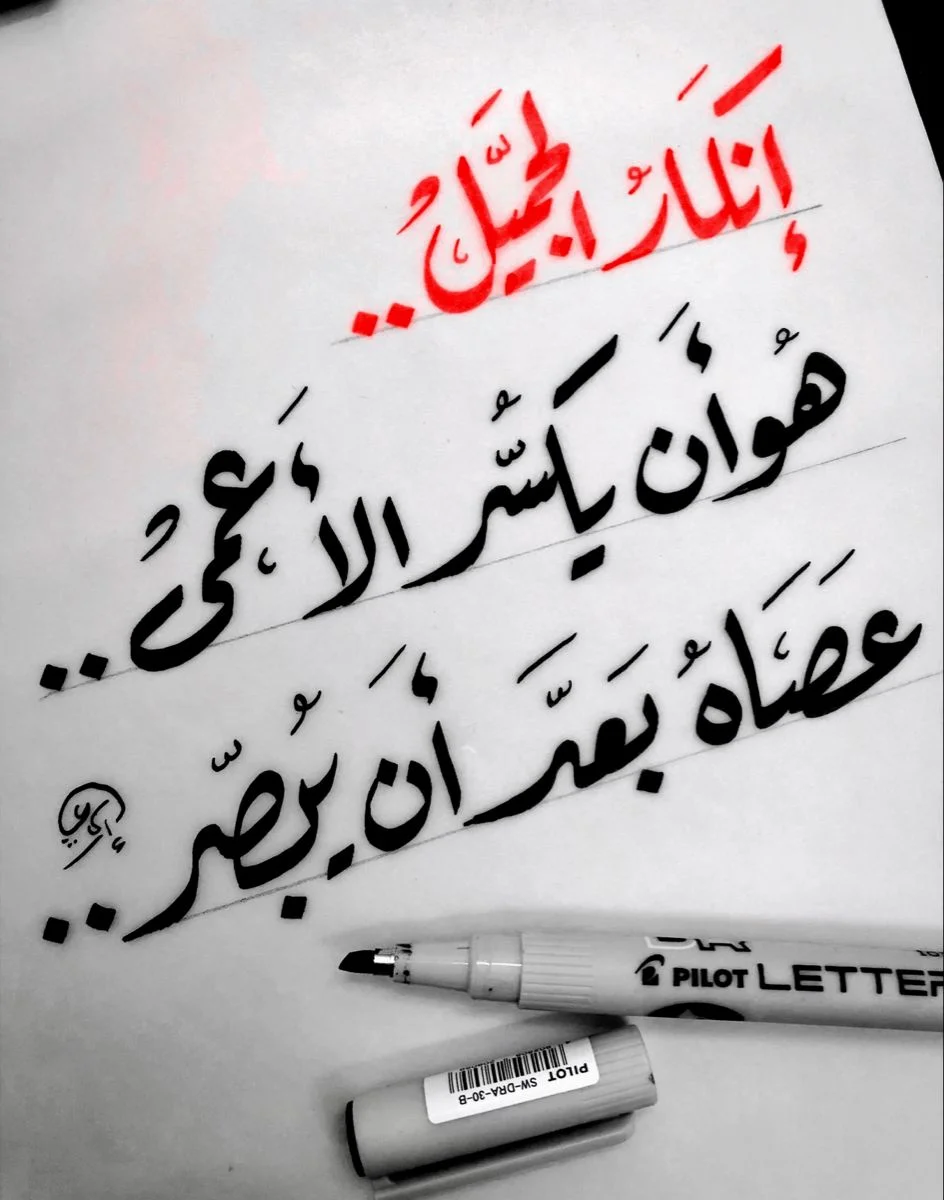 إنكارُ الجميلُ..
هُوَ أن يكسّرُ الأَعمىٰ..
عَصَاهُ بَعدَ أَن يُبصّر..
PILOT LETTER
PILOT SW-DRA-30-B